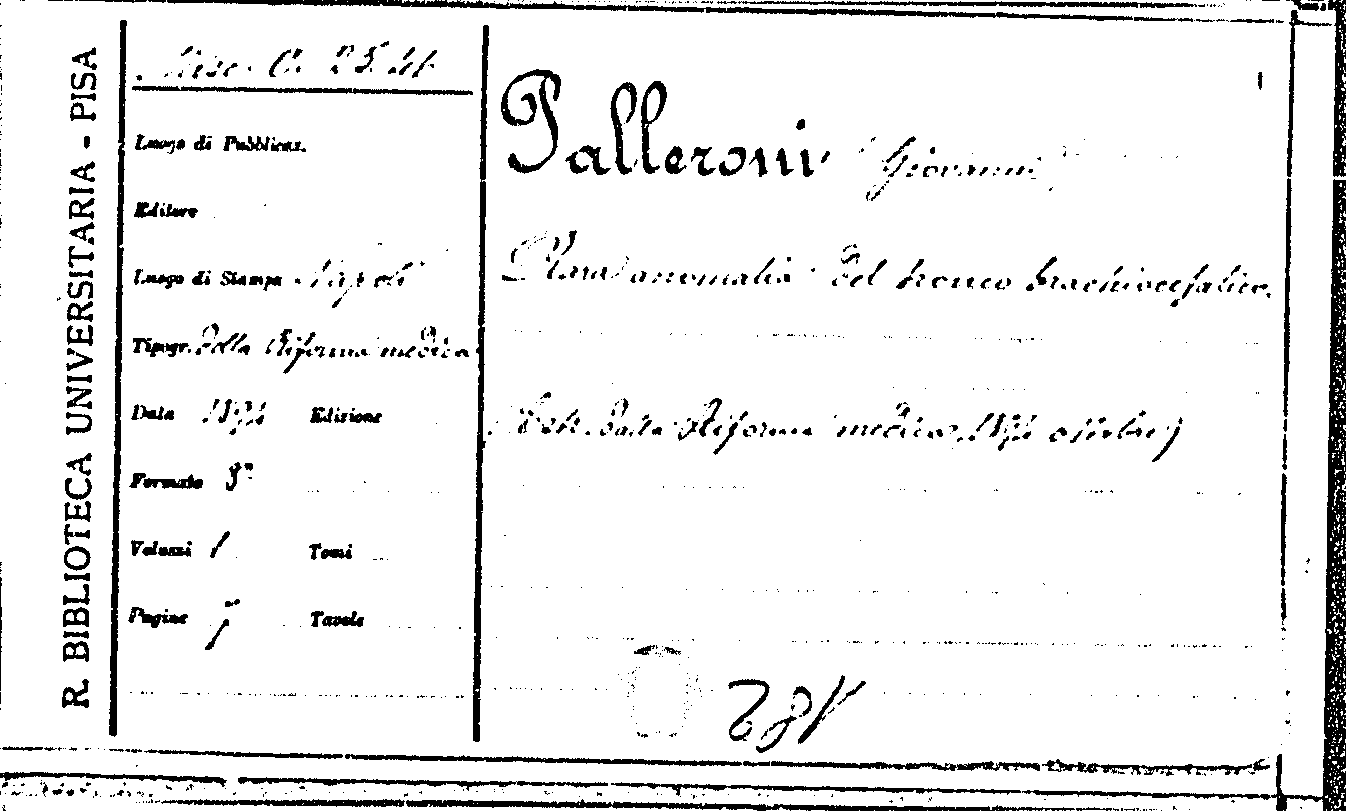 R. BIBLIOTECA UNIVERSITARIA - PISA
Misc. C. 25. 41.
Luogo di Pubblicaz.
Editore
Luogo di Stampa Napoli
Tipogr. della Riforma medica
Data Edizione
Formato 8°
Volumi 1 Tomi
Pagine Tavole
Palleroni (Giovanni)
Rara anomalia del tronco brachiocefalico.
(Estr. dalla Riforma medica, ottobre)